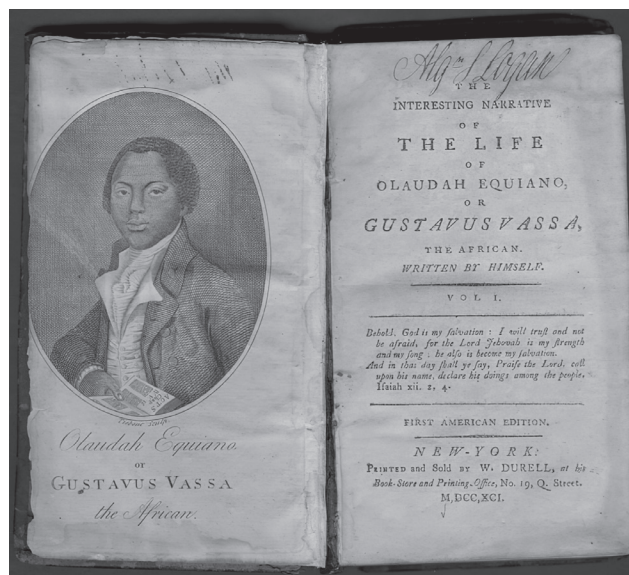 Olaudah Equiano.
or
GUSTAVUS VASSA
the African.
Logan
THE
INTERESTING NARRATIVE
OF
THE LIFE
OF
OLAUDAH EQUIANO,
OR
GUSTAVUS VASSA,
THE AFRICAN.
WRITTEN BY HIMSELF.
VOL I.
Behold, God is my ſalvation : I will truſt and not
be afraid, for the Lord Jehovah is my ſtrength
and my ſong ; he alſo is become my ſalvation.
And in that day ſhall ye ſay, Praiſe the Lord, call
upon his name, declare his doings among the people.
Iſaiah xii. 2, 4.
FIRST AMERICAN EDITION.
NEW-YORK:
PRINTED and Sold BY W. DURELL, at his
Book-Store and Printing-Office, No. 19, Q. Street.
M,DCC,XCI.